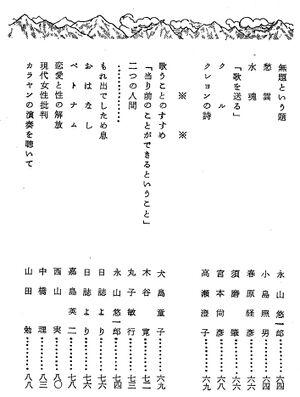 無題という題 永山悠一郎 六四
愁雲 小島照男 六四
水魂 春原経彦
「歌を送る」 須磨肇
クル 宮本尚彦
クレヨンの詩 高瀬澄子 六九
※ ※
歌うことのすすめ 犬島童子 六九
「当り前のことができるということ」 木谷寛 七二
二つの人間 丸子敏行 七三
………… 永山悠一郎 七四
もれ出でしため息 日誌より 七六
おはなし 日誌より 七六
ベトナム 嘉島英二 七八
恋愛と性の解放 西山実 八〇
現代女性批判 中橋理 八三
カラヤンの演奏を聴いて 山田勉 八八